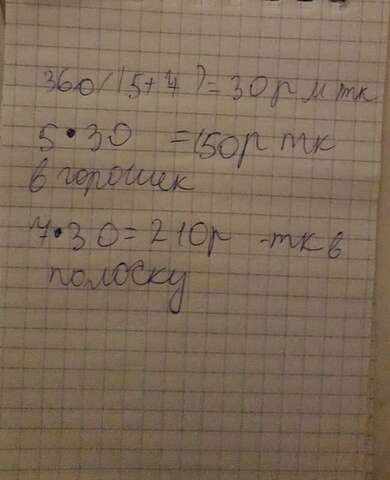 360/(5+7)=30р м тк
5•30 =150р тк
в горошек
7•30=210р -тк в
полоску